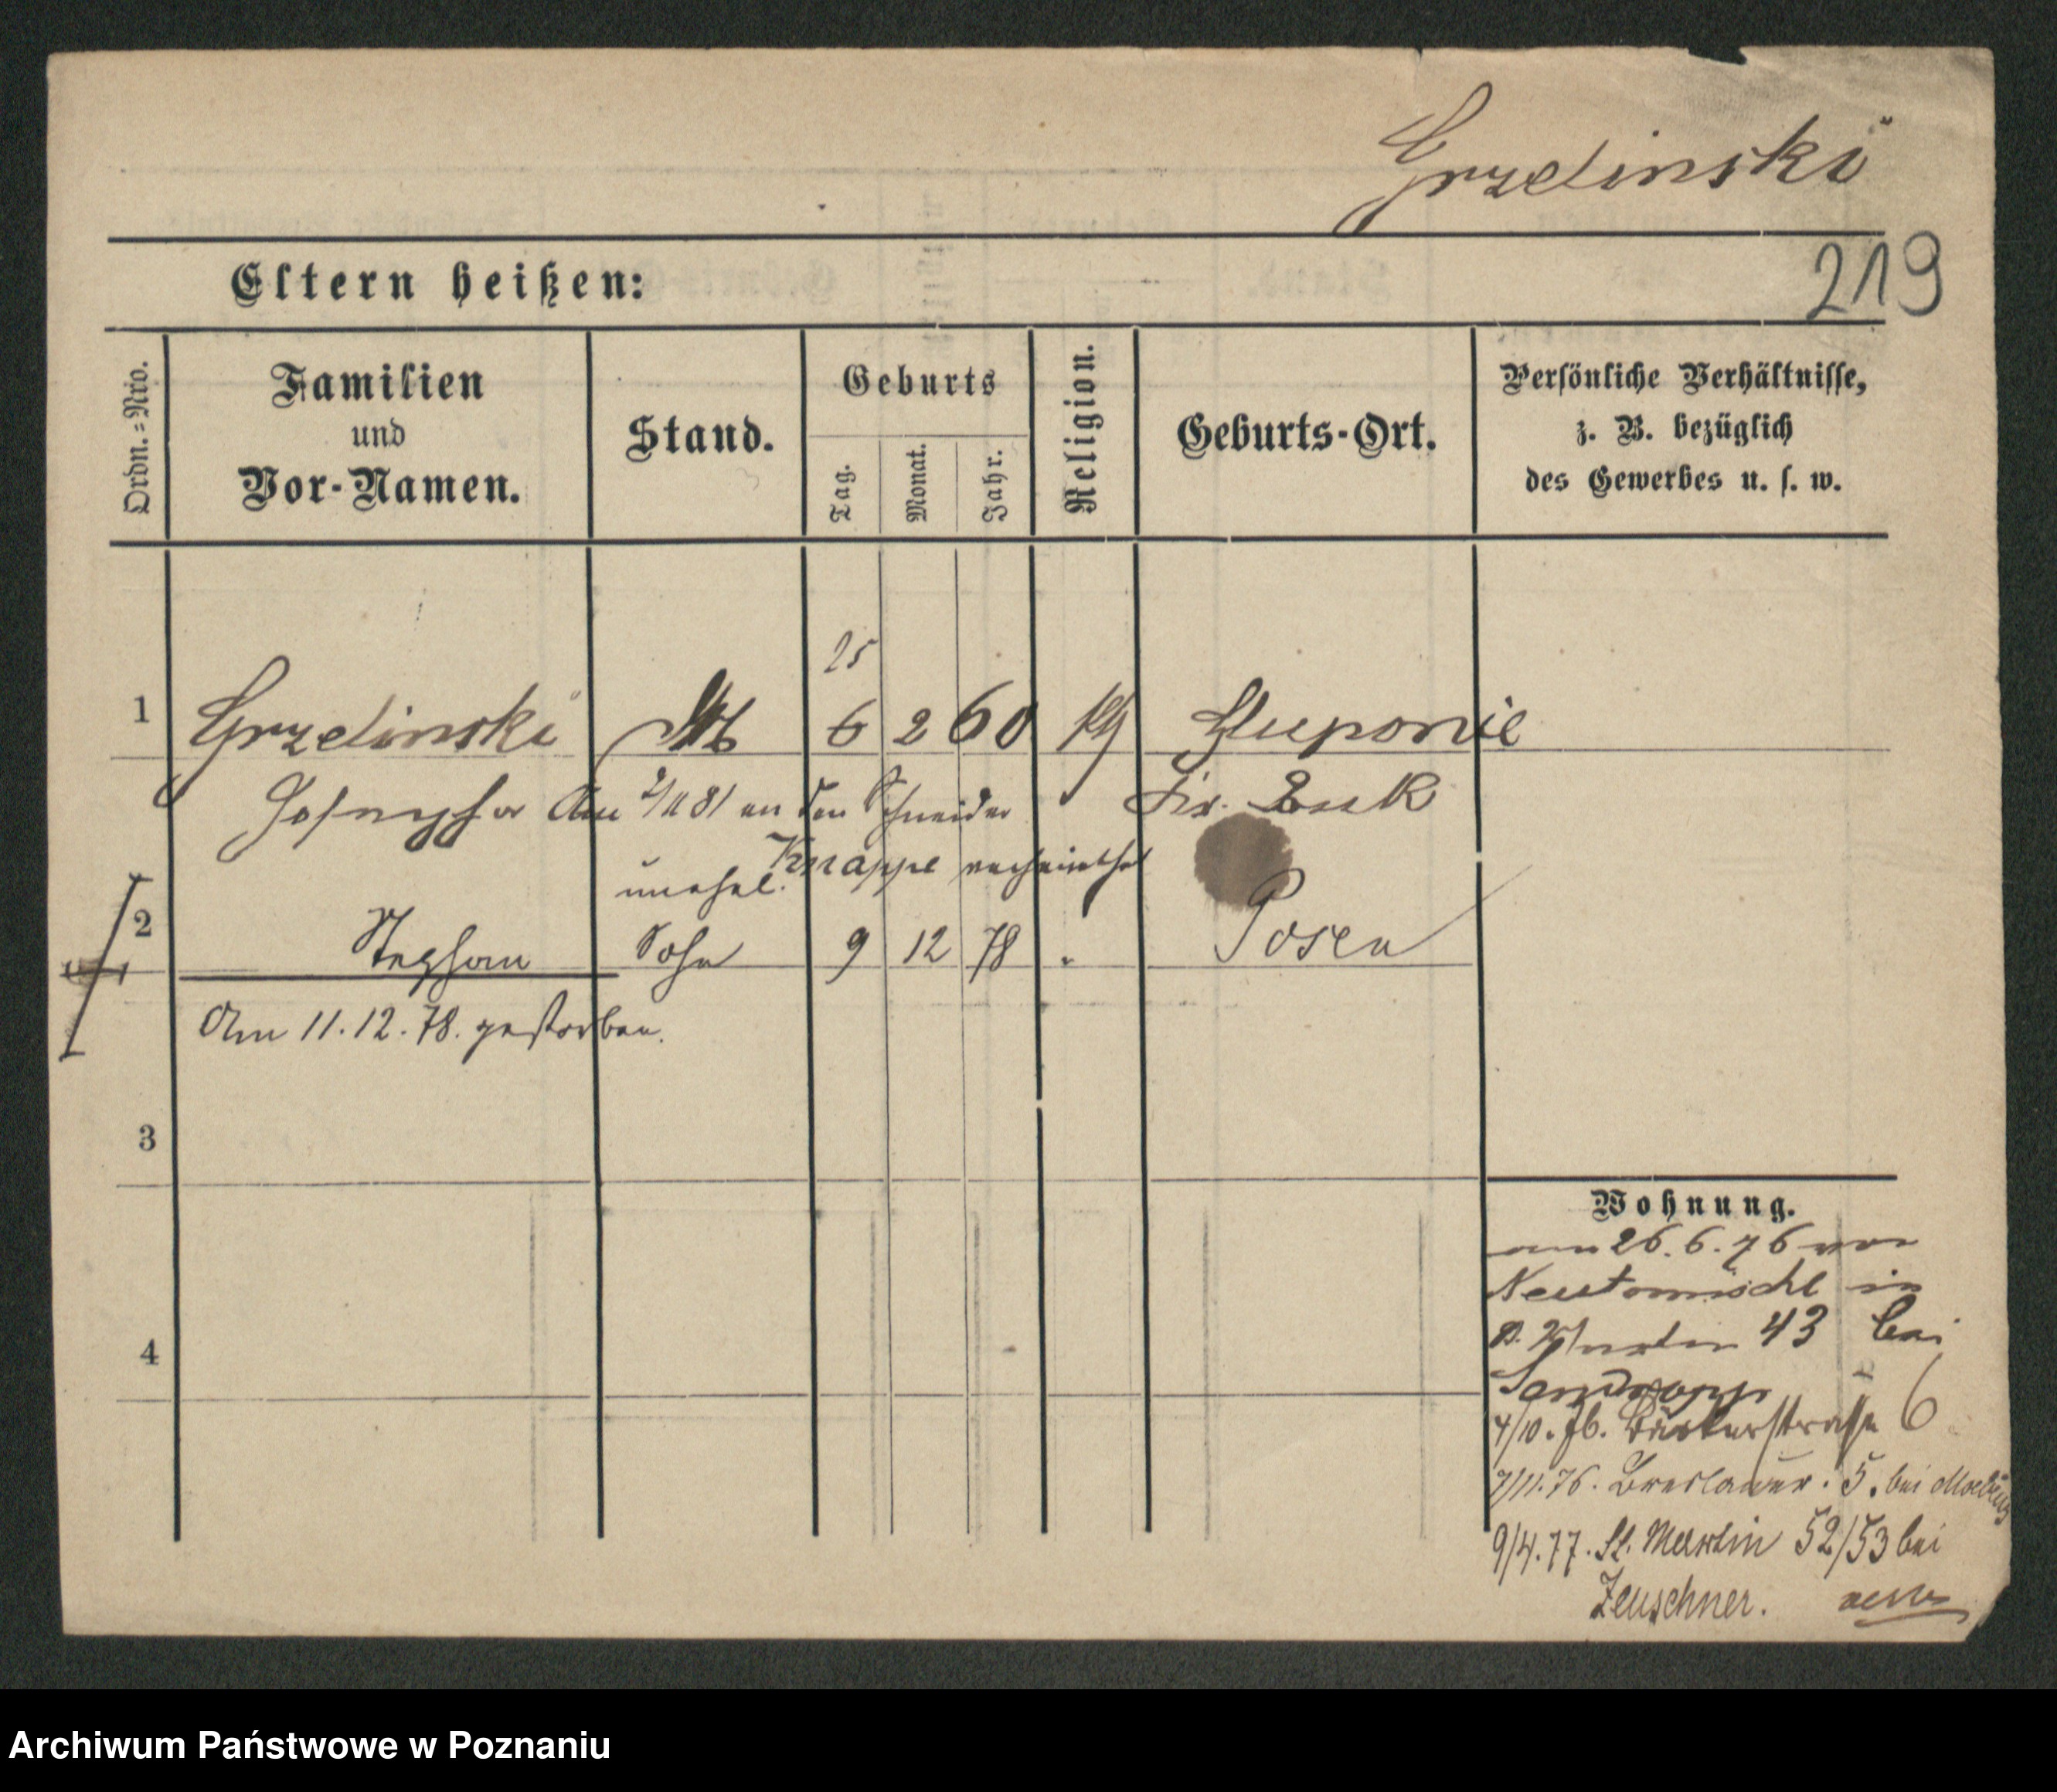 Grzelinski
219
Eltern heißen:
Ordn.=Nro.
Familien
und
Vor-Namen.
Stand.
Geburts
Tag.
Monat.
Jahr.
Religion.
Geburts-Ort.
Persönliche Verhältnisse,
z. B. bezüglich
des Gewerbes u. s. w.
25
1 Grzelinski 6 2 60 kth Sluponie
Josepha Am 2/11 81 an den Schneider Kr. Buk
Knappe verheirathet
unehel.
2 Stephan Sohn 9 12 78 " Posen
Am 11.12.78. gestorben.
3
4
Wohnung.
am 26.6.76 von
Neutomischl in
43 bei
4/10. 76. Bäckerstrasse 6
7/11.76. Breslauer. 5. bei
9/4.77. St. Martin 52/53 bei
Zeuschner.
Archiwum Państwowe w Poznaniu